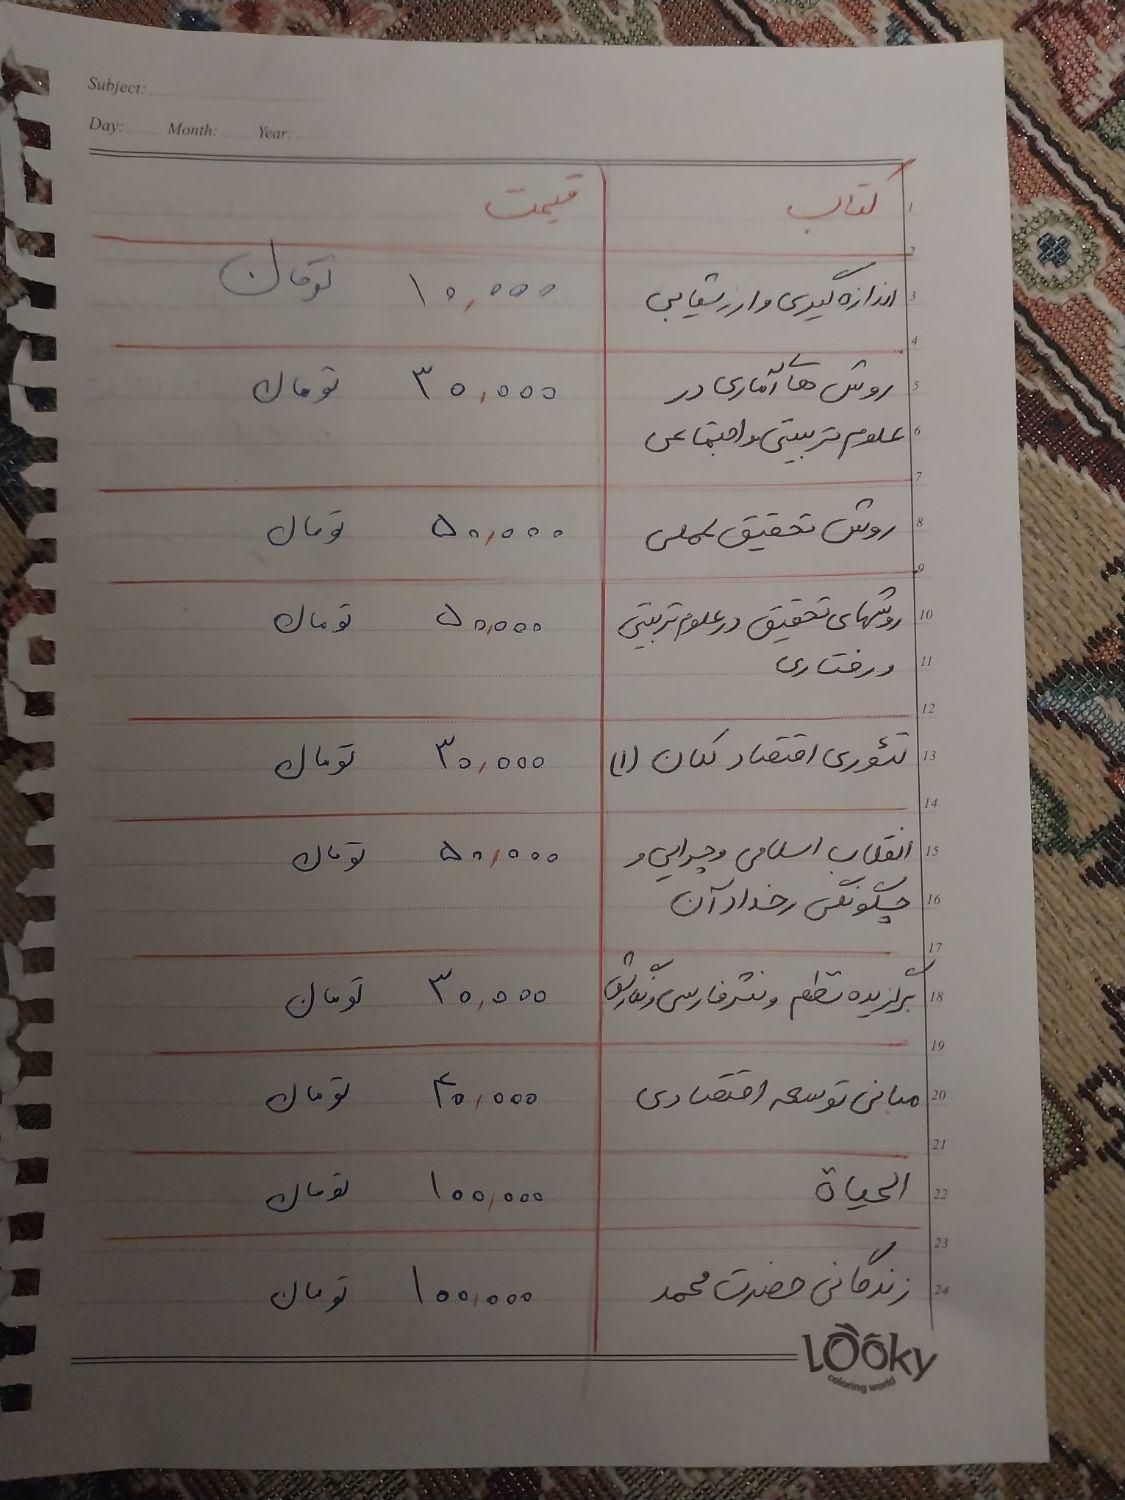 Subject:
Day: Month: Year:
کتاب قیمت
اندازه گیری و ارزشیابی ۱۰,۰۰۰ تومان
روش های آماری در ۳۰,۰۰۰ تومان
علوم تربیتی و اجتماعی
روش تحقیق عملی ۵۰,۰۰۰ تومان
روشهای تحقیق در علوم تربیتی ۵۰,۰۰۰ تومان
و رفتاری
تئوری اقتصاد کلان (۱) ۳۰,۰۰۰ تومان
انقلاب اسلامی و چرایی و ۵۰,۰۰۰ تومان
چگونگی رخداد آن
برگزیده نظم و نثر فارسی و نگارش ۳۰,۰۰۰ تومان
مبانی توسعه اقتصادی ۴۰,۰۰۰ تومان
الحیاة ۱۰۰,۰۰۰ تومان
زندگانی حضرت محمد ۱۰۰,۰۰۰ تومان
1
2
3
4
5
6
7
8
9
10
11
12
13
14
15
16
17
18
19
20
21
22
23
24
Looky
coloring world